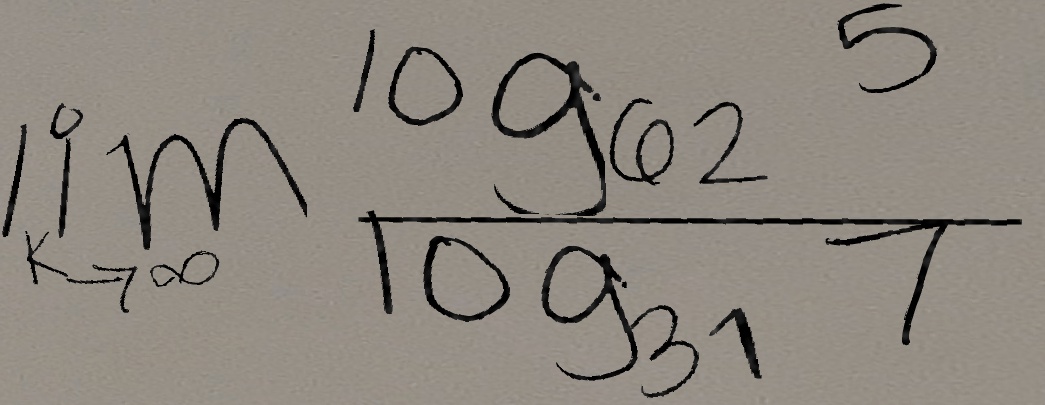 lim_{k→∞} \frac{log_{62} 5}{log_{31} 7}